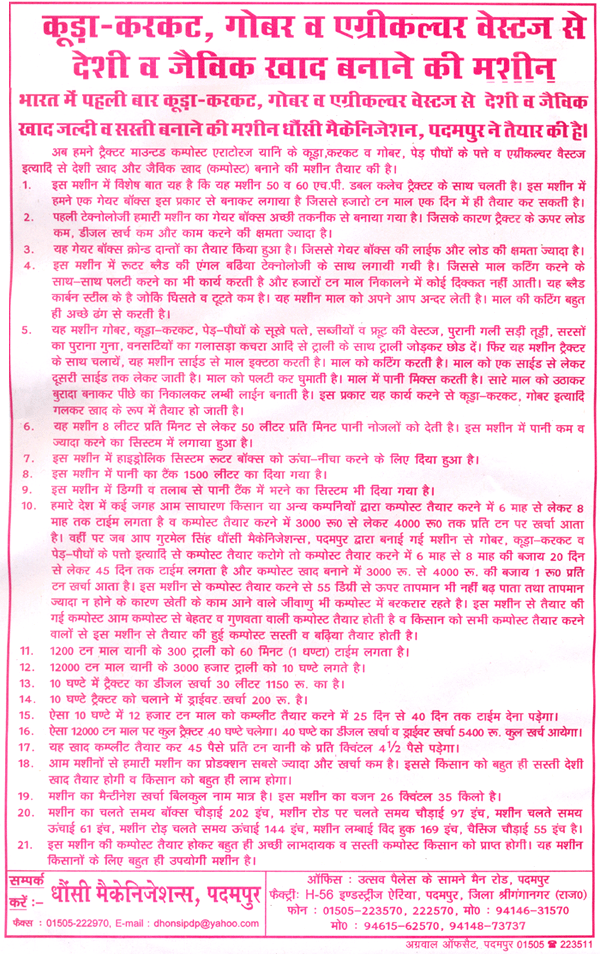 कूड़ा-करकट, गोबर व एग्रीकल्चर वेस्टज से
देशी व जैविक खाद बनाने की मशीन
भारत में पहली बार कूड़ा-करकट, गोबर व एग्रीकल्चर वेस्टज से देशी व जैविक
खाद जल्दी व सस्ती बनाने की मशीन धौंसी मैकेनिजेशन, पदमपुर ने तैयार की है।
अब हमने ट्रैक्टर माउन्टड कम्पोस्ट एराटोरज यानि के कूड़ा,करकट व गोबर, पेड़ पौघों के पत्ते व एग्रीकल्चर वैस्टज
इत्यादि से देशी खाद और जैविक खाद (कम्पोस्ट) बनाने की मशीन तैयार की है।
1. इस मशीन में विशेष बात यह है कि यह मशीन 50 व 60 एच.पी. डबल कलेच ट्रैक्टर के साथ चलती है। इस मशीन में
हमने एक गेयर बॉक्स इस प्रकार से बनाकर लगाया है जिससे हजारो टन माल एक दिन में ही तैयार कर सकती है।
2. पहली टेक्नोलोजी हमारी मशीन का गेयर बॉक्स अच्छी तकनीक से बनाया गया है। जिसके कारण ट्रैक्टर के ऊपर लोड
कम, डीजल खर्च कम और काम करने की क्षमता ज्यादा है।
3. यह गेयर बॉक्स क्रोन्ड दान्तों का तैयार किया हुआ है। जिससे गेयर बॉक्स की लाईफ और लोड की क्षमता ज्यादा है।
4. इस मशीन में रूटर ब्लैड की एंगल बढिया टेक्नोलोजी के साथ लगायी गयी है। जिससे माल कटिंग करने के
साथ-साथ पलटी करने का भी कार्य करती है और हजारों टन माल निकालने में कोई दिक्कत नहीं आती। यह ब्लैड
कार्बन स्टील के है जोकि घिसते व टूटते कम है। यह मशीन माल को अपने आप अन्दर लेती है। माल की कटिंग बहुत
ही अच्छे ढंग से करती है।
5. यह मशीन गोबर, कूड़ा-करकट, पेड़-पौघों के सूखे पत्ते, सब्जीयों व फ्रूट की वेस्टज, पुरानी गली सड़ी तूड़ी, सरसों
का पुराना गुना, वनसटियों का गलासड़ा कचरा आदि से ट्राली के साथ ट्राली जोड़कर छोड दें। फिर यह मशीन ट्रैक्टर
के साथ चलायें, यह मशीन साईड से माल इक्टठा करती है। माल को कटिंग करती है। माल को एक साईड से लेकर
दूसरी साईड तक लेकर जाती है। माल को पलटी कर घुमाती है। माल में पानी मिक्स करती है। सारे माल को उठाकर
बुरादा बनाकर पीछे का निकालकर लम्बी लाईन बनाती है। इस प्रकार यह कार्य करने से कूड़ा-करकट, गोबर इत्यादि
गलकर खाद के रूप में तैयार हो जाती है।
6. यह मशीन 8 लीटर प्रति मिनट से लेकर 50 लीटर प्रति मिनट पानी नोजलों को देती है। इस मशीन में पानी कम व
ज्यादा करने का सिस्टम में लगाया हुआ है।
7. इस मशीन में हाइड्रोलिक सिस्टम रूटर बॉक्स को ऊंचा-नीचा करने के लिए दिया हुआ है।
8. इस मशीन में पानी का टैंक 1500 लीटर का दिया गया है।
9. इस मशीन में डिग्गी व तलाब से पानी टैंक में भरने का सिस्टम भी दिया गया है।
10. हमारे देश में कई जगह आम साधारण किसान या अन्य कम्पनियों द्वारा कम्पोस्ट तैयार करने में 6 माह से लेकर 8
माह तक टाईम लगता है व कम्पोस्ट तैयार करने में 3000 रू0 से लेकर 4000 रू0 तक प्रति टन पर खर्चा आता
है। वहीं पर जब आप गुरमेल सिंह धौंसी मैकेनिजेशन्स, पदमपुर द्वारा बनाई गई मशीन से गोबर, कूड़ा-करकट व
पेड़-पौघों के पत्तो इत्यादि से कम्पोस्ट तैयार करोगे तो कम्पोस्ट तैयार करने में 6 माह से 8 माह की बजाय 20 दिन
से लेकर 45 दिन तक टाईम लगता है और कम्पोस्ट खाद बनाने में 3000 रू. से 4000 रू. की बजाय 1 रू0 प्रति
टन खर्चा आता है। इस मशीन से कम्पोस्ट तैयार करने से 55 डिग्री से ऊपर तापमान भी नहीं बढ़ पाता तथा तापमान
ज्यादा न होने के कारण खेती के काम आने वाले जीवाणु भी कम्पोस्ट में बरकरार रहते है। इस मशीन से तैयार की
गई कम्पोस्ट आम कम्पोस्ट से बेहतर व गुणवता वाली कम्पोस्ट तैयार होती है व किसान को सभी कम्पोस्ट तैयार करने
वालों से इस मशीन से तैयार की हुई कम्पोस्ट सस्ती व बढ़िया तैयार होती है।
11. 1200 टन माल यानी के 300 ट्राली को 60 मिनट (1 घण्टा) टाईम लगता है।
12. 12000 टन माल यानी के 3000 हजार ट्राली को 10 घण्टे लगते है।
13. 10 घण्टे में ट्रैक्टर का डीजल खर्चा 30 लीटर 1150 रू. का है।
14. 10 घण्टे ट्रैक्टर को चलाने में ड्राईवर खर्चा 200 रू. है।
15. ऐसा 10 घण्टे में 12 हजार टन माल को कम्पलीट तैयार करने में 25 दिन से 40 दिन तक टाईम देना पड़ेगा।
16. ऐसा 12000 टन माल पर कुल ट्रैक्टर 40 घण्टे चलेगा। 40 घण्टे का डीजल खर्चा व ड्राईवर खर्चा 5400 रू. कुल खर्च आयेगा।
17. यह खाद कम्पलीट तैयार कर 45 पैसे प्रति टन यानी के प्रति क्विंटल 4½ पैसे पड़ेगा।
18. आम मशीनों से हमारी मशीन का प्रोडक्शन सबसे ज्यादा और खर्च कम है। इससे किसान को बहुत ही सस्ती देशी
खाद तैयार होगी व किसान को बहुत ही लाभ होगा।
19. मशीन का मैन्टीनेश खर्चा बिलकुल नाम मात्र है। इस मशीन का वजन 26 क्विंटल 35 किलो है।
20. मशीन का चलते समय बॉक्स चौड़ाई 202 इंच, मशीन रोड पर चलते समय चौड़ाई 97 इंच, मशीन चलते समय
ऊंचाई 61 इंच, मशीन रोड़ चलते समय ऊंचाई 144 इंच, मशीन लम्बाई विद हुक 169 इंच, चैसिज चौड़ाई 55 इंच है।
21. इस मशीन की कम्पोस्ट तैयार होकर बहुत ही अच्छी लाभदायक व सस्ती कम्पोस्ट किसान को प्राप्त होगी। यह मशीन
किसानों के लिए बहुत ही उपयोगी मशीन है।
सम्पर्क
करें :- धौंसी मैकेनिजेशन्स, पदमपुर
फैक्स : 01505-222970, E-mail : dhonsipdp@yahoo.com
ऑफिस : उत्सव पैलेस के सामने मैन रोड, पदमपुर
फैक्ट्री: H-56 इण्डस्ट्रीज ऐरिया, पदमपुर, जिला श्रीगंगानगर (राज0)
फोन : 01505-223570, 222570, मो0 : 94146-31570
मो0 : 94615-62570, 94148-73737
अग्रवाल ऑफसैट, पदमपुर 01505 ☎ 223511